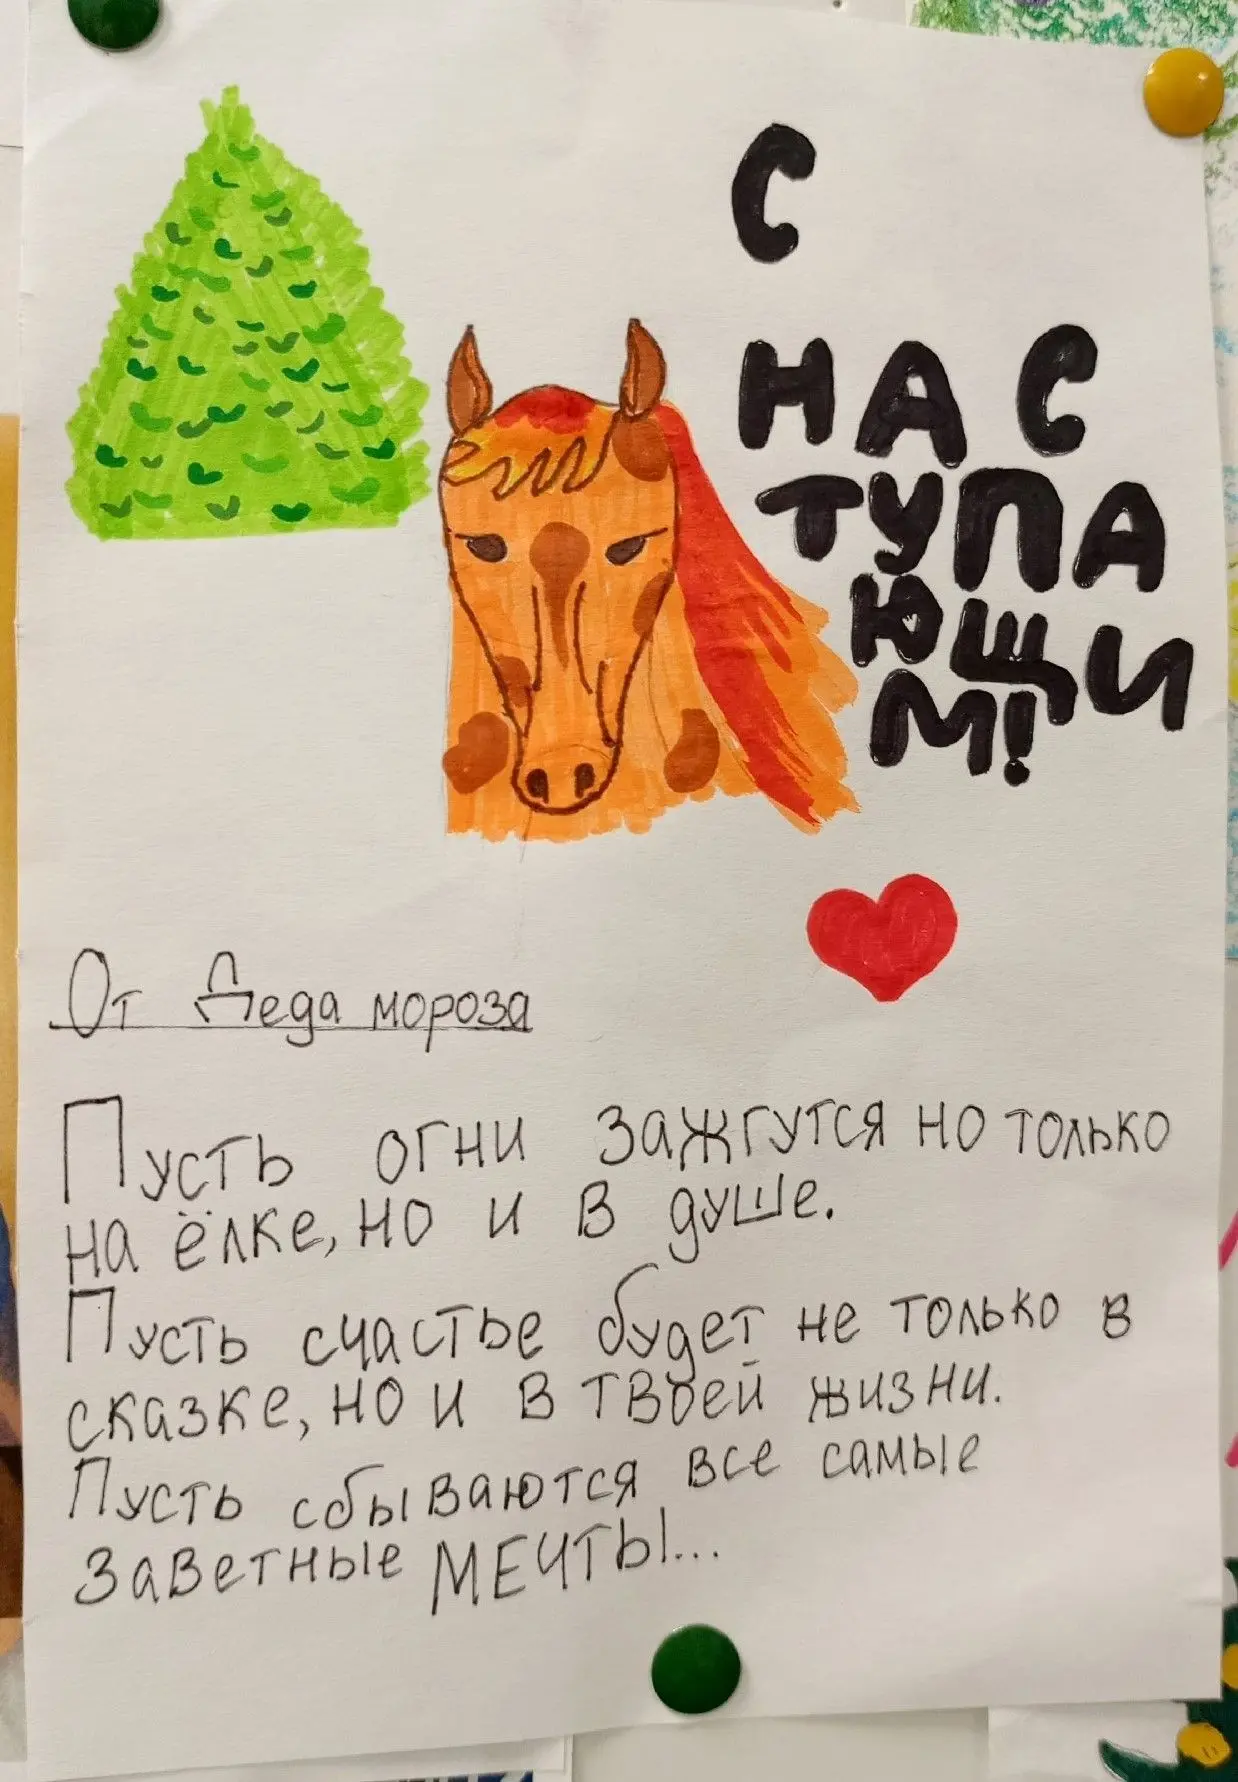 С
НАС
ТУПА
ЮЩИ
М!
От Деда мороза
Пусть огни зажгутся но только
на ёлке, но и в душе.
Пусть счастье будет не только в
сказке, но и в твоей жизни.
Пусть сбываются все самые
заветные МЕЧТЫ...